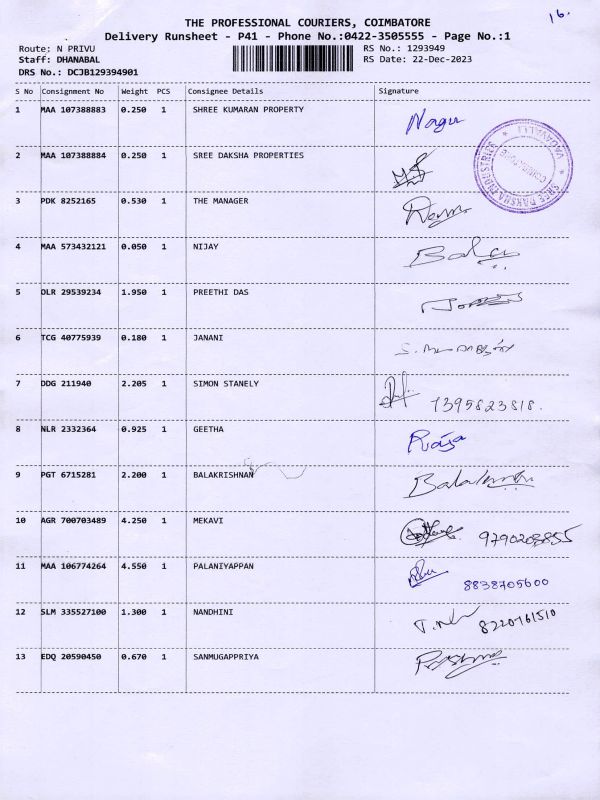 16.
THE PROFESSIONAL COURIERS, COIMBATORE
Delivery Runsheet - P41 - Phone No.:0422-3505555 - Page No.:1
Route: N PRIVU RS No.: 1293949
Staff: DHANABAL RS Date: 22-Dec-2023
DRS No.: DCJB129394901
S No Consignment No Weight PCS Consignee Details Signature
1 MAA 107388883 0.250 1 SHREE KUMARAN PROPERTY Nagu
2 MAA 107388884 0.250 1 SREE DAKSHA PROPERTIES
SREE DAKSHA INDUSTRIES
COIMBATORE
VADAVALLI
3 PDK 8252165 0.530 1 THE MANAGER
4 MAA 573432121 0.050 1 NIJAY
5 DLR 29539234 1.950 1 PREETHI DAS
6 TCG 40775939 0.180 1 JANANI
7 DDG 211940 2.205 1 SIMON STANELY 7395823818.
8 NLR 2332364 0.925 1 GEETHA Raja
9 PGT 6715281 2.200 1 BALAKRISHNAN
10 AGR 700703489 4.250 1 MEKAVI
11 MAA 106774264 4.550 1 PALANIYAPPAN 8838705600
12 SLM 335527100 1.300 1 NANDHINI 8220761510
13 EDQ 20590450 0.670 1 SANMUGAPPRIYA